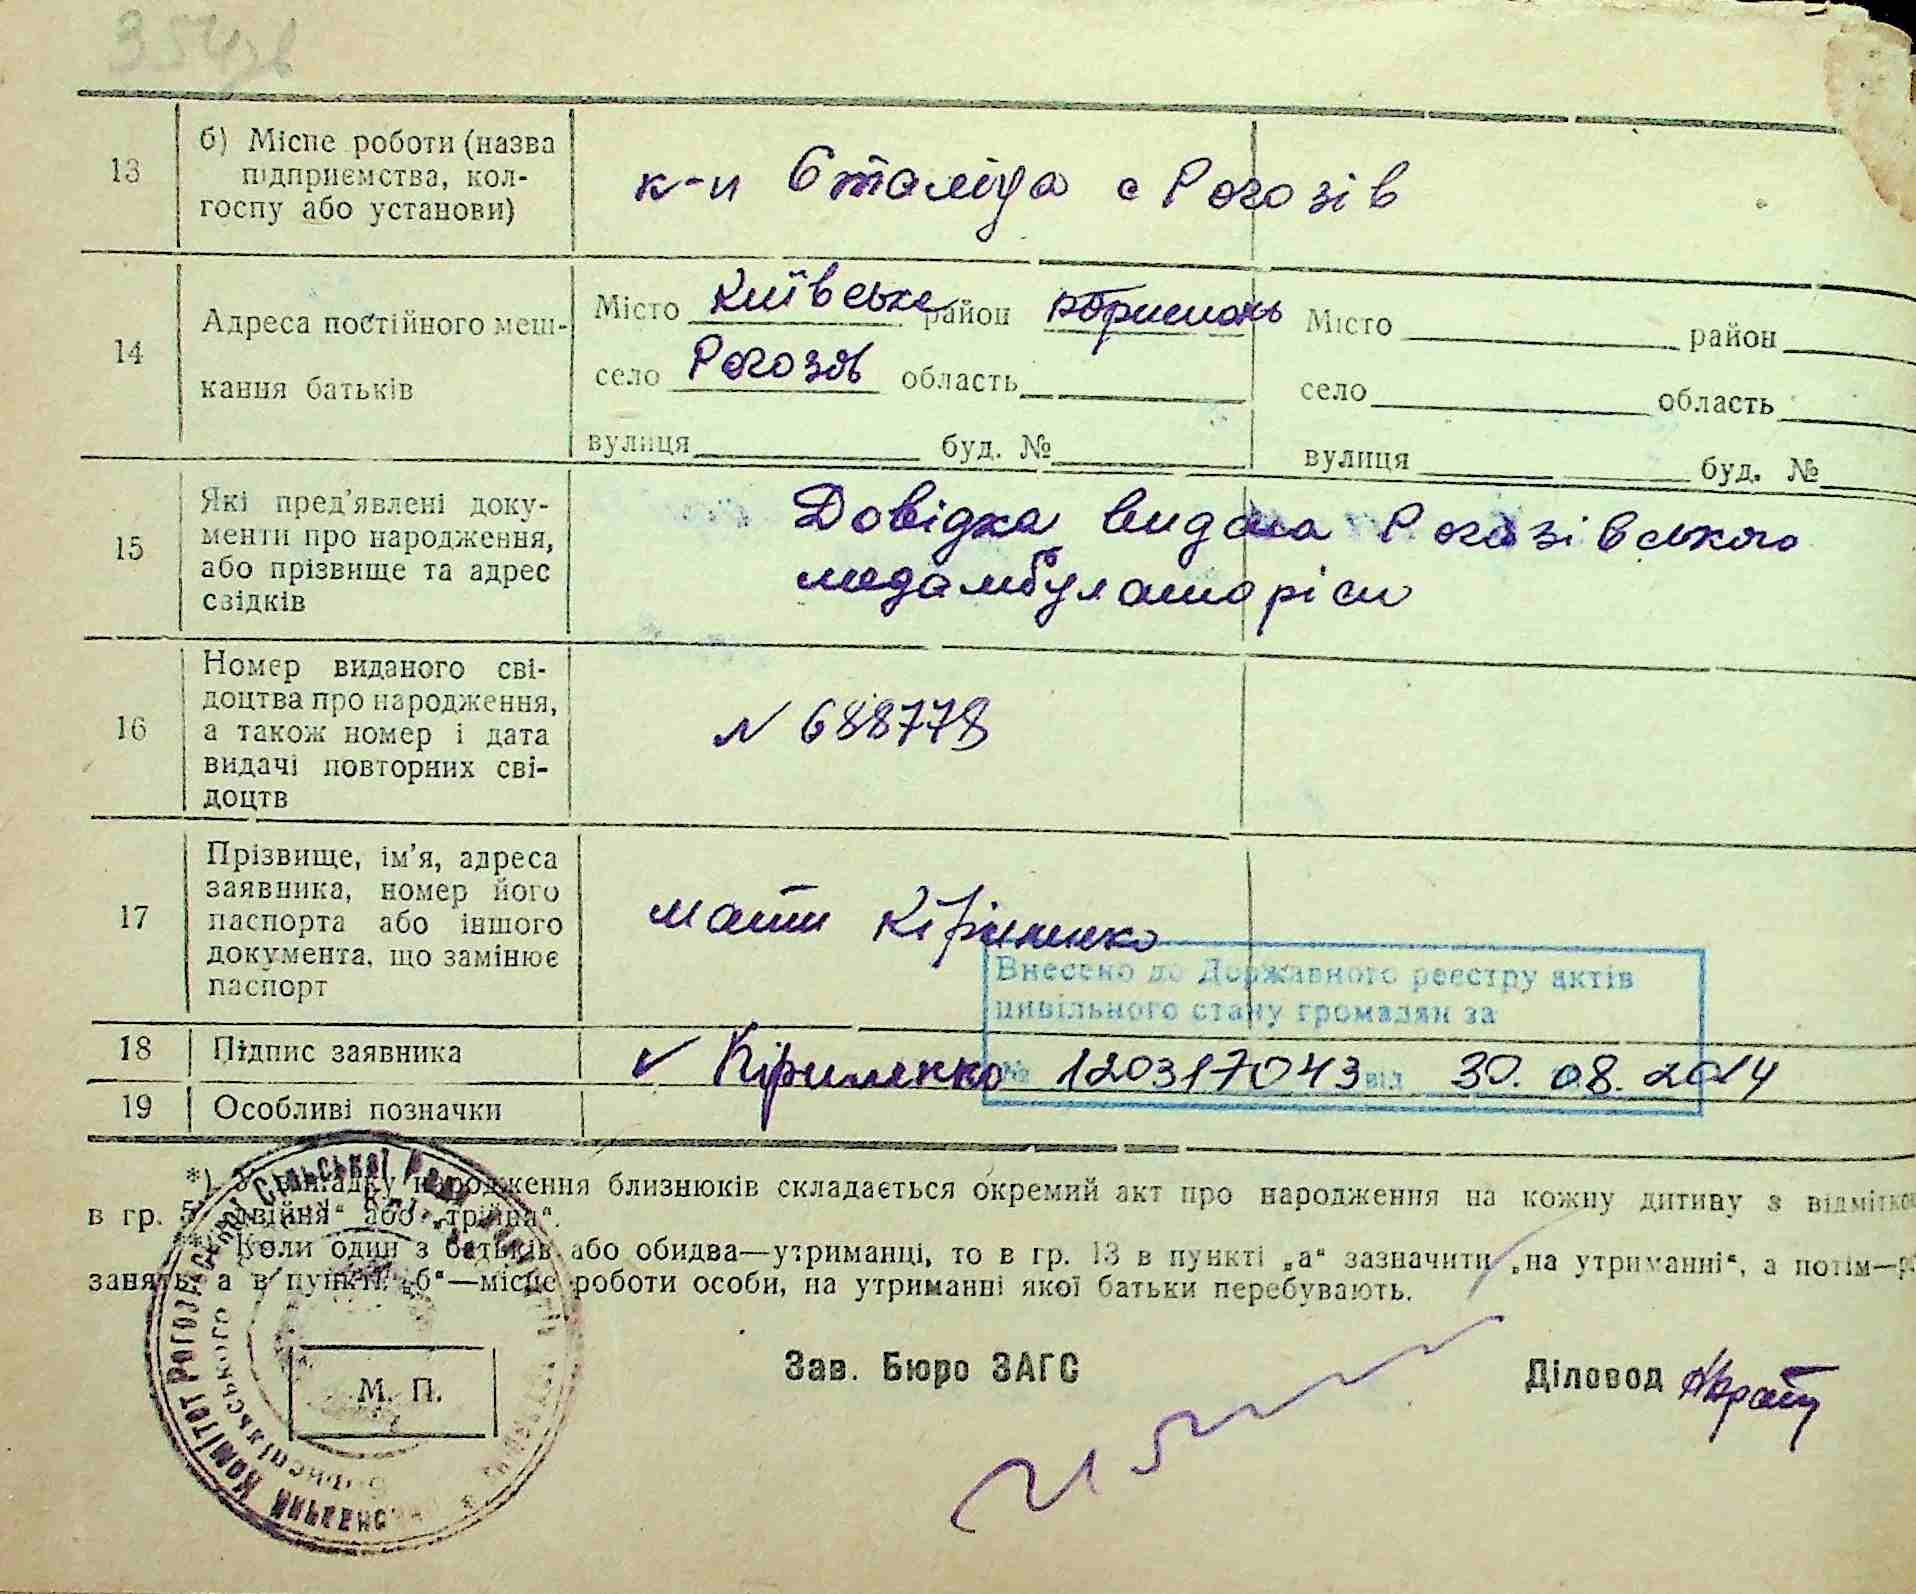 13
б) Місце роботи (назва
підприємства, кол-
госпу або установи)
к-п Сталіна с Рогозів
14
Адреса постійного меш-
кання батьків
Місто Київське район Бориспонь Місто район
село Рогозів область село область
вулиця буд. № вулиця буд. №
15
Які пред’явлені доку-
менти про народження,
або прізвище та адрес
свідків
Довідка видана Рогозівською
медамбулаторією
16
Номер виданого сві-
доцтва про народження,
а також номер і дата
видачі повторних сві-
доцтв
№ 688778
17
Прізвище, ім’я, адреса
заявника, номер його
паспорта або іншого
документа, що замінює
паспорт
мати Кіриненко
Внесено до Державного реєстру актів
цивільного стану громадян за
№ 120317043 від 30.08.2014
18 Підпис заявника Кіриленко
19 Особливі позначки
*) У випадку народження близнюків складається окремий акт про народження на кожну дитину з відміткою
в гр. 5 „двійня“ або „трійня“.
Коли один з батьків або обидва—утриманці, то в гр. 13 в пункті „а“ зазначити „на утриманні“, а потім—р
занять, а в пункті „б“—місце роботи особи, на утриманні якої батьки перебувають.
М. П.
Зав. Бюро ЗАГС
Діловод